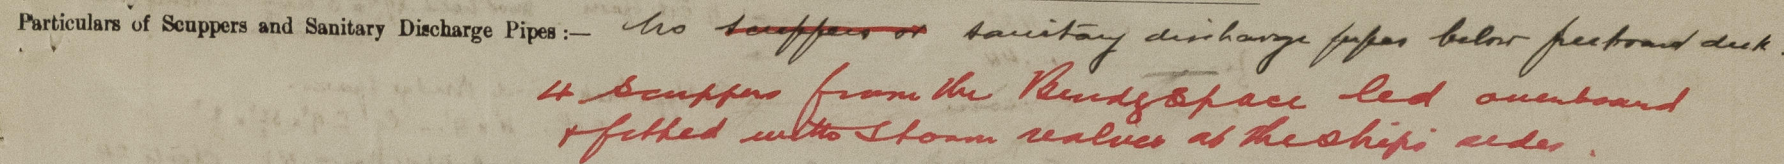 Particulars of Scuppers and Sanitary Discharge Pipes :— No scuppers or sanitary discharge pipes below freeboard deck.
4 Scuppers from the Bridge Space led overboard
& fitted with storm valves at the ships sides.